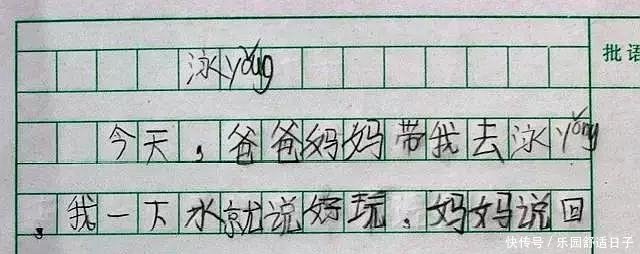 批语
泳yǒng
今天，爸爸妈妈带我去泳yǒng
，我一下水就说好玩，妈妈说回
快传号 / 乐园舒适日子